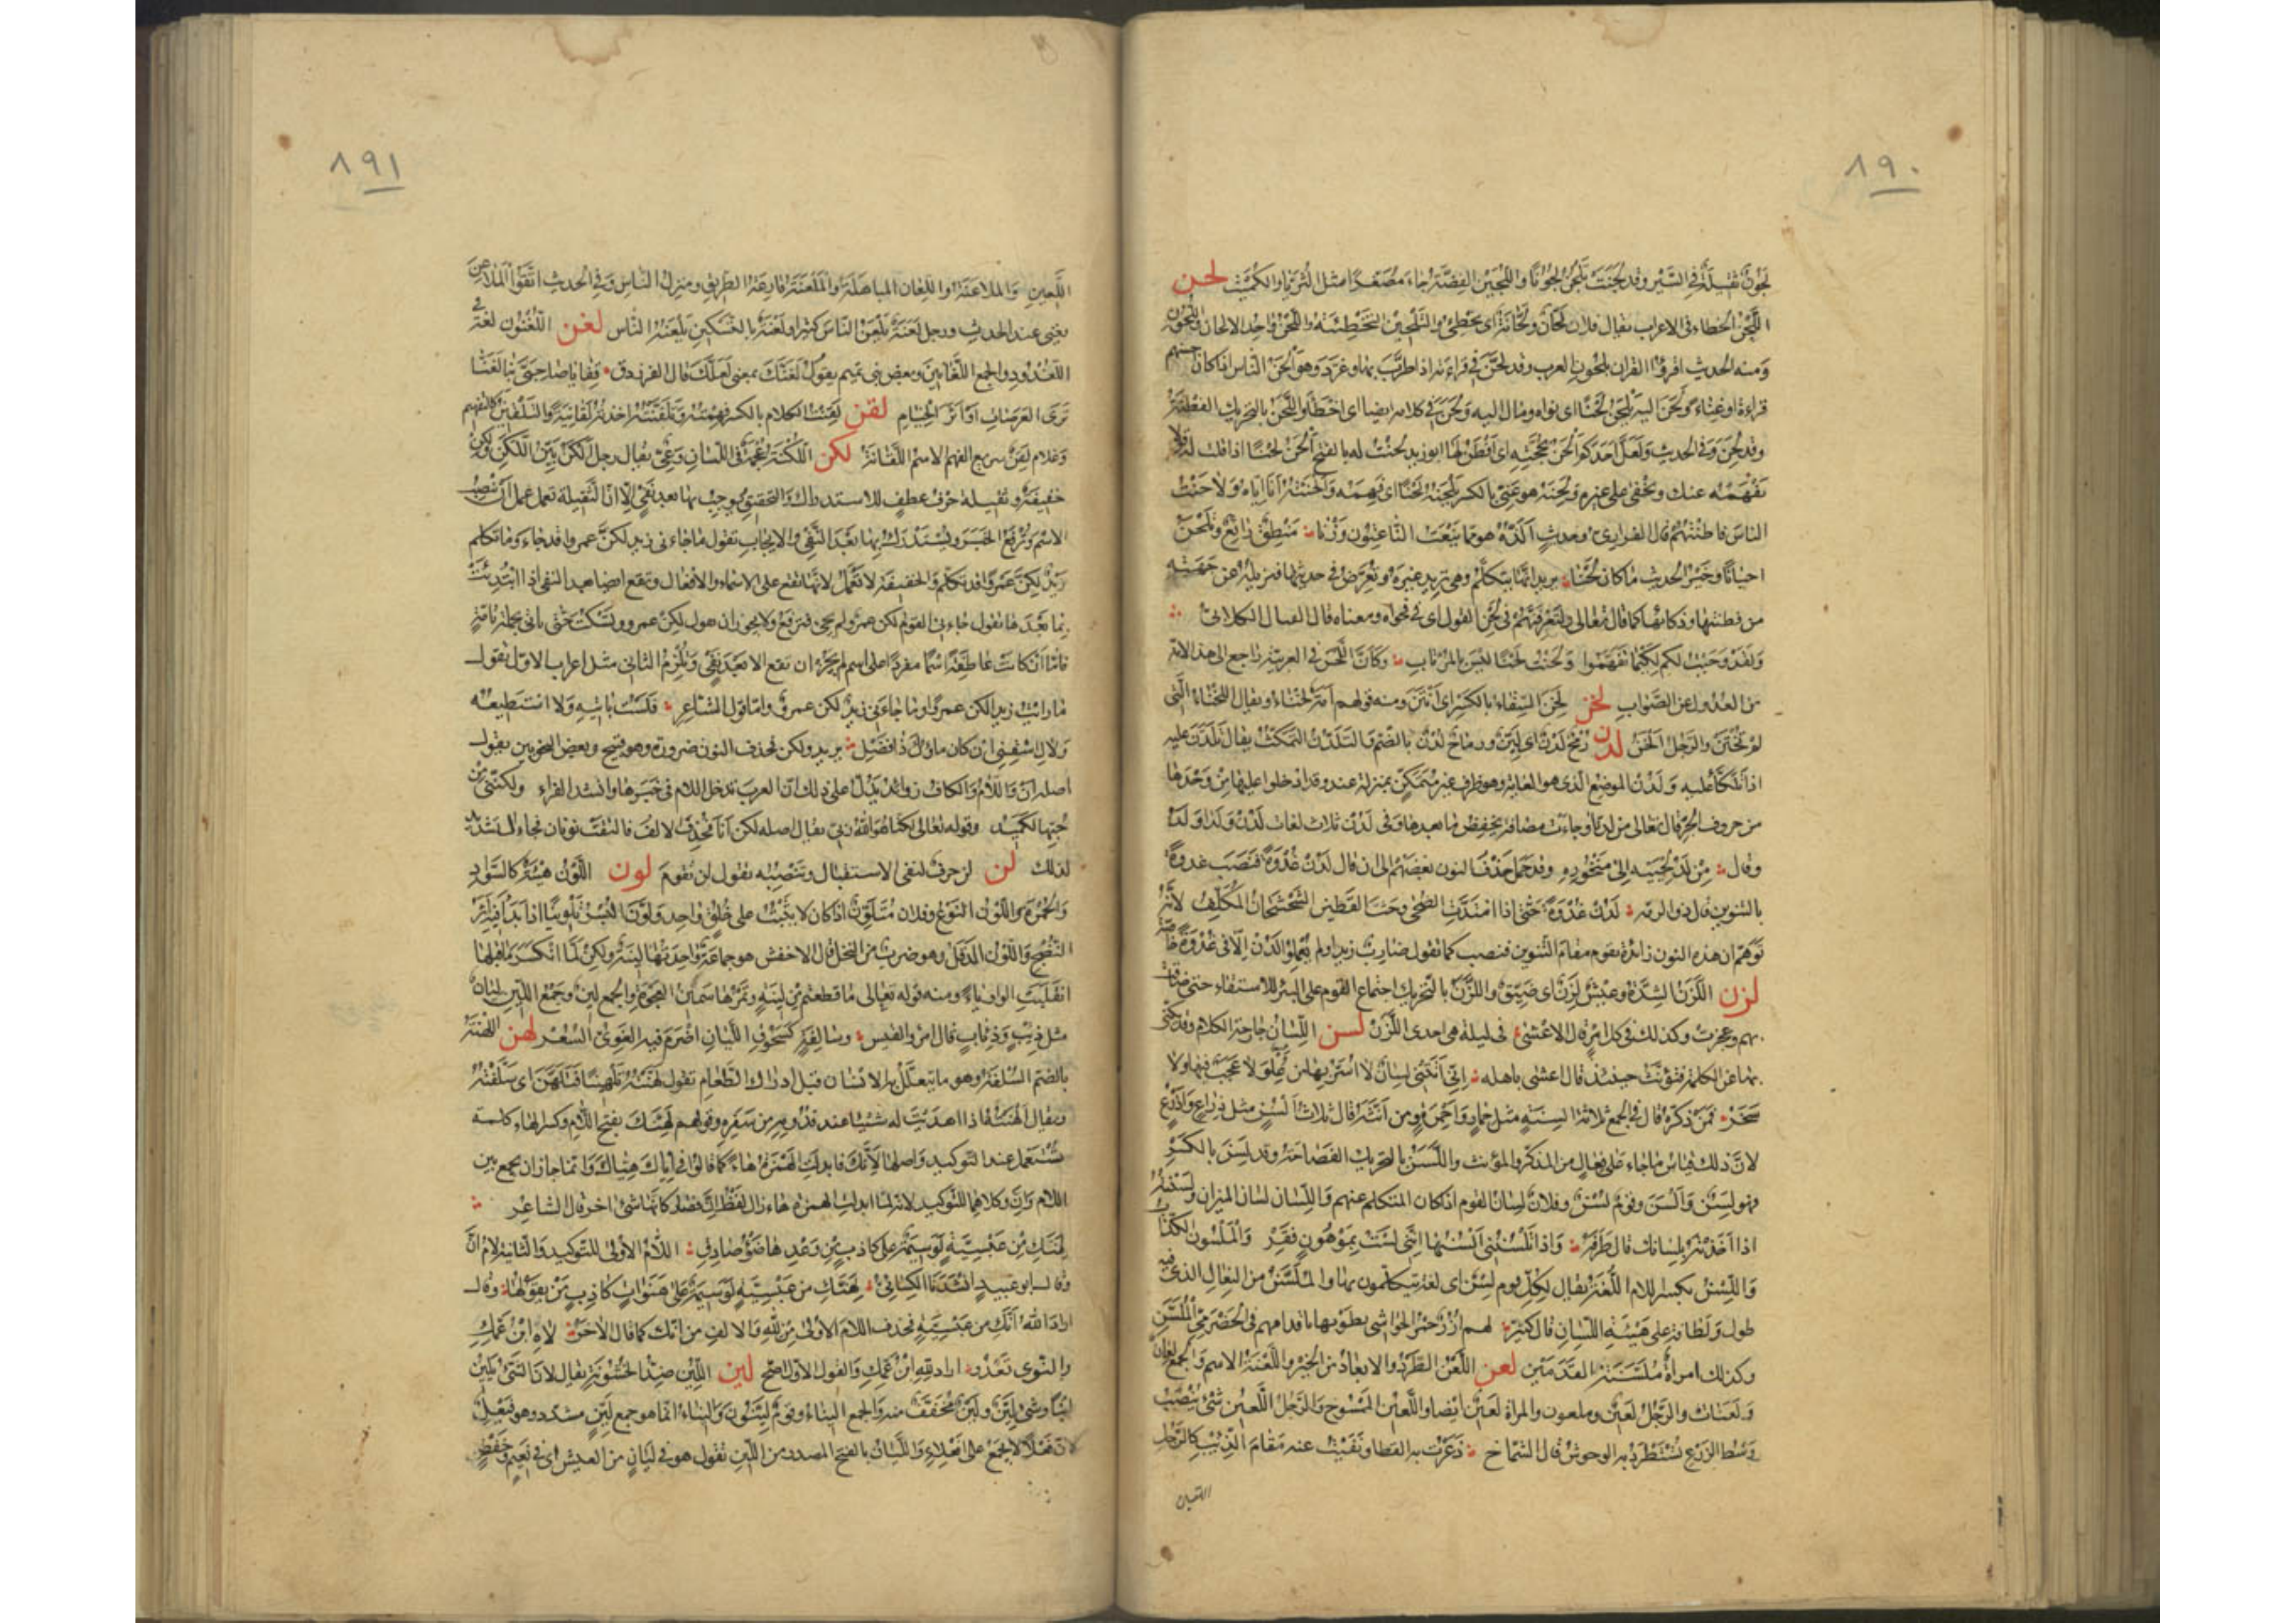 ٨٩٠
لجون ثقيلة في السير وقد لجنت تلجن لجونا واللجين الفضة جاء مصغدا مثل الثريا والكميت لحن
اللحن الخطاء في الاعراب يقال فلان لحان ولحانة اى يخطئ والتلحين التخطئة واللحن واحد الالحان واللحون
ومنه الحديث اقرؤا القران بلحون العرب وقد لحن في قراءته اذا طرب بها وغرد وهو الحن الناس اذا كان احسنهم
قراءة او غناء ولحن اليه يلحن لحنا اى نواه ومال اليه ولحن في كلامه ايضا اى اخطأ واللحن بالتحريك الفطنة
وقد لحن وفي الحديث ولعل احدكم الحن بحجته اى افطن لها ابو زيد لحنت له بالفتح الحن لحنا اذا قلت له قولا
يفهمه عنك ويخفى على غيره ولحنه هو عنى بالكسر يلحنه لحنا اى فهمه والحنته انا اياه ولاحنت
الناس فاطنتهم قال الفزارى وحديث الذه هو مما ينعت الناعتون وزنا منطق رائع وتلحن
احيانا وخير الحديث ما كان لحنا يريد انها تتكلم وهى تريد غيره وتعرض في حديثها فتزيله عن جهته
من فطنتها وذكائها كما قال تعالى ولتعرفنهم في لحن القول اى في فحواه ومعناه قال القتال الكلابى
ولقد وحيت لكم لكيما تفهموا ولحنت لحنا ليس بالمرتاب وكان اللحن في العربية راجع الى هذا لانه
من العدول عن الصواب لخن لخن السقاء بالكسر اى انتن ومنه قولهم امة لخناء ويقال اللخناء التى
لم تختن والرجل الخن لدن رمح لدن اى لين ورماح لدن بالضم والتلدن التمكث يقال تلدن عليه
اذا تلكأ عليه ولدن الموضع الذى هو الغاية وهو ظرف غير متمكن بمنزلة عند وقد ادخلوا عليها من وحدها
من حروف الجر قال تعالى من لدنا وجاءت مضافة يخفض ما بعدها وفى لدن ثلاث لغات لدن ولدا ولد
وقال من لد لحييه الى منحوره وقد حمل حذف النون بعضهم الى ان قال لدن غدوة فنصب غدوة
بالتنوين قال ذو الرمه لدن غدوة حتى اذا امتدت الضحى وحث القطين الشحشحان المكلف لانه
توهم ان هذه النون زائدة تقوم مقام التنوين فنصب كما تقول ضارب زيدا ولم يعملوا لدن الا في غدوة خاصة
لزن اللزن الشدة وعيش لزن اى ضيق واللزن بالتحريك اجتماع القوم على البئر للاستقاء حتى ضاقت
بهم وعجزت وكذلك في كل امر قال الاعشى في ليلة هى احدى اللزن لسن اللسان جارحة الكلام وقد يكنى
بها عن الكلمة فتؤنث حينئذ قال اعشى باهله انى اتتنى لسان لا اسر بها من علو لا عجب فيها ولا
سخر فمن ذكره قال في الجمع ثلاثة السنة مثل حمار واحمرة ومن انثه قال ثلاث السن مثل ذراع واذرع
لان ذلك قياس ما جاء على فعال من المذكر والمؤنث واللسن بالتحريك الفصاحة وقد لسن بالكسر
فهو لسن والسن وقوم لسن وفلان لسان القوم اذا كان المتكلم عنهم واللسان لسان الميزان ولسنته
اذا اخذته بلسانك قال طرفة واذا تلسننى السنها اننى لست بموهون فقر والملسون الكذاب
واللسن بكسر اللام اللغة يقال لكل قوم لسن اى لغة يتكلمون بها والملسن من النعال الذى فيه
طول ولطافة على هيئة اللسان قال كثير لهم ازر حمر الحواشى يطونها باقدامهم في الحضرمى الملسن
وكذلك امراة ملسنة القدمين لعن اللعن الطرد والابعاد من الخير واللعنة الاسم والجمع لعان
ولعنات والرجل لعين وملعون والمراة لعين ايضا واللعين الممسوح والرجل اللعين شئ ينصب
وسط الزرع تستطرد به الوحوش قال الشماخ ذعرت به القطا ونفيت عنه مقام الذيب كالرجل
اللعين
٨٩١
اللعين والملاعنة واللعان المباهلة والملعنة قارعة الطريق ومنزل الناس وفي الحديث اتقوا الملاعن
يعنى عند الحديث ورجل لعنة يلعن الناس كثيرا ولعنة بالتسكين يلعنه الناس لغن اللغنون لغة في
اللغدود والجمع اللغانين وبعض بنى تميم يقول لغنك بمعنى لعلك قال الفرزدق قفا يا صاحبى بنا لغنا
نرى العرصات او اثر الخيام لقن لقنت الكلام بالكسر فهمته وتلقنته اخذته لقانية والتلقين كالتفهيم
وغلام لقن سريع الفهم والاسم اللقانة لكن اللكنة عجمة في اللسان وعى يقال رجل الكن بين اللكن ولكن
خفيفة وثقيلة حرف عطف للاستدراك والتحقيق يوجب بها بعد نفى الا ان الثقيلة تعمل عمل ان تنصب
الاسم وترفع الخبر ويستدرك بها بعد النفى والايجاب تقول ما جاءنى زيد لكن عمروا قد جاء وما تكلم
زيد لكن عمروا قد تكلم والخفيفة لا تعمل لانها تقع على الاسماء والافعال وتقع ايضا بعد النفى اذا ابتدئت
بما بعدها تقول جاءنى القوم لكن عمرو لم يجئ فترفع ولا يجوز ان تقول لكن عمرو وتسكت حتى تاتى بجملة تامة
فاما ان كانت عاطفة اسما مفردا على اسم لم يجز ان تقع الا بعد نفى وتلزم الثانى مثل اعراب الاول تقول
ما رايت زيدا لكن عمروا وما جاءنى زيد لكن عمرو واما قول الشاعر فلست باتيه ولا استطيعه
ولاك اسقنى ان كان ماؤك ذا فضل يريد ولكن فحذف النون ضرورة وهو قبيح وبعض النحويين يقول
اصله ان واللام والكاف زوائد يدل على ذلك ان العرب تدخل اللام في خبرها وانشد الفراء ولكننى من
حبها لكميد وقوله تعالى لكنا هو الله ربى يقال اصله لكن انا فحذفت الالف فالتقت نونان فجاء التشديد
لذلك لن لن حرف لنفى الاستقبال وتنصب به تقول لن تقوم لون اللون هيئة كالسواد
والحمرة واللون النوع وفلان متلون اذا كان لا يثبت على خلق واحد ولون البسر تلوينا اذا بدا فيه اثر
النضج واللون الدقل وهو ضرب من النخل قال الاخفش هو جماعة واحدتها لينة ولكن لما انكسر ما قبلها
انقلبت الواو ياء ومنه قوله تعالى ما قطعتم من لينة وتمرها سمين العجوة والجمع لين وجمع اللين ليان
مثل ذيب وذئاب قال امرؤ القيس وسالفة كسحوق الليان اضرم فيه الغوى السعر لهن اللهنة
بالضم السلفة وهو ما يتعلل به الانسان قبل ادراك الطعام تقول لهنته تلهينا فتلهن اى سلفته
ويقال الهنته اذا اهديت له شيئا عند قدومه من سفره وقولهم لهنك بفتح اللام وكسر الهاء كلمة
تستعمل عند التوكيد واصلها لانك فابدلت الهمزة هاء كما قالوا في اياك هياك وانما جاز ان يجمع بين
اللام وان وكلاهما للتوكيد لانه لما ابدلت الهمزة هاء زال لفظ ان فصار كانها شئ اخر قال الشاعر
لهنك من عبسية لوسيمة على كاذب من وعدها ضوء صادق اللام الاولى للتوكيد والثانية لام ان
وقال ابو عبيد انشدنا الكسائى لهنك من عبسية لوسيمة على هنوات كاذب من يقولها وقال
اراد الله انك من عبسية فحذف اللام الاولى من لله والالف من انك كما قال الاخر لاه ابن عمك
والنوى تعدو اراد لله ابن عمك والقول الاول اصح لين اللين ضد الخشونة يقال لان الشئ يلين
لينا وشئ لين ولين مخفف منه والجمع اليناء وقوم لينون واليناء انما هو جمع لين مشدد وهو فيعل
لان فعلا لا يجمع على افعلاء والليان بالفتح المصدر من اللين تقول هو في ليان من العيش اى في نعيم وخفض